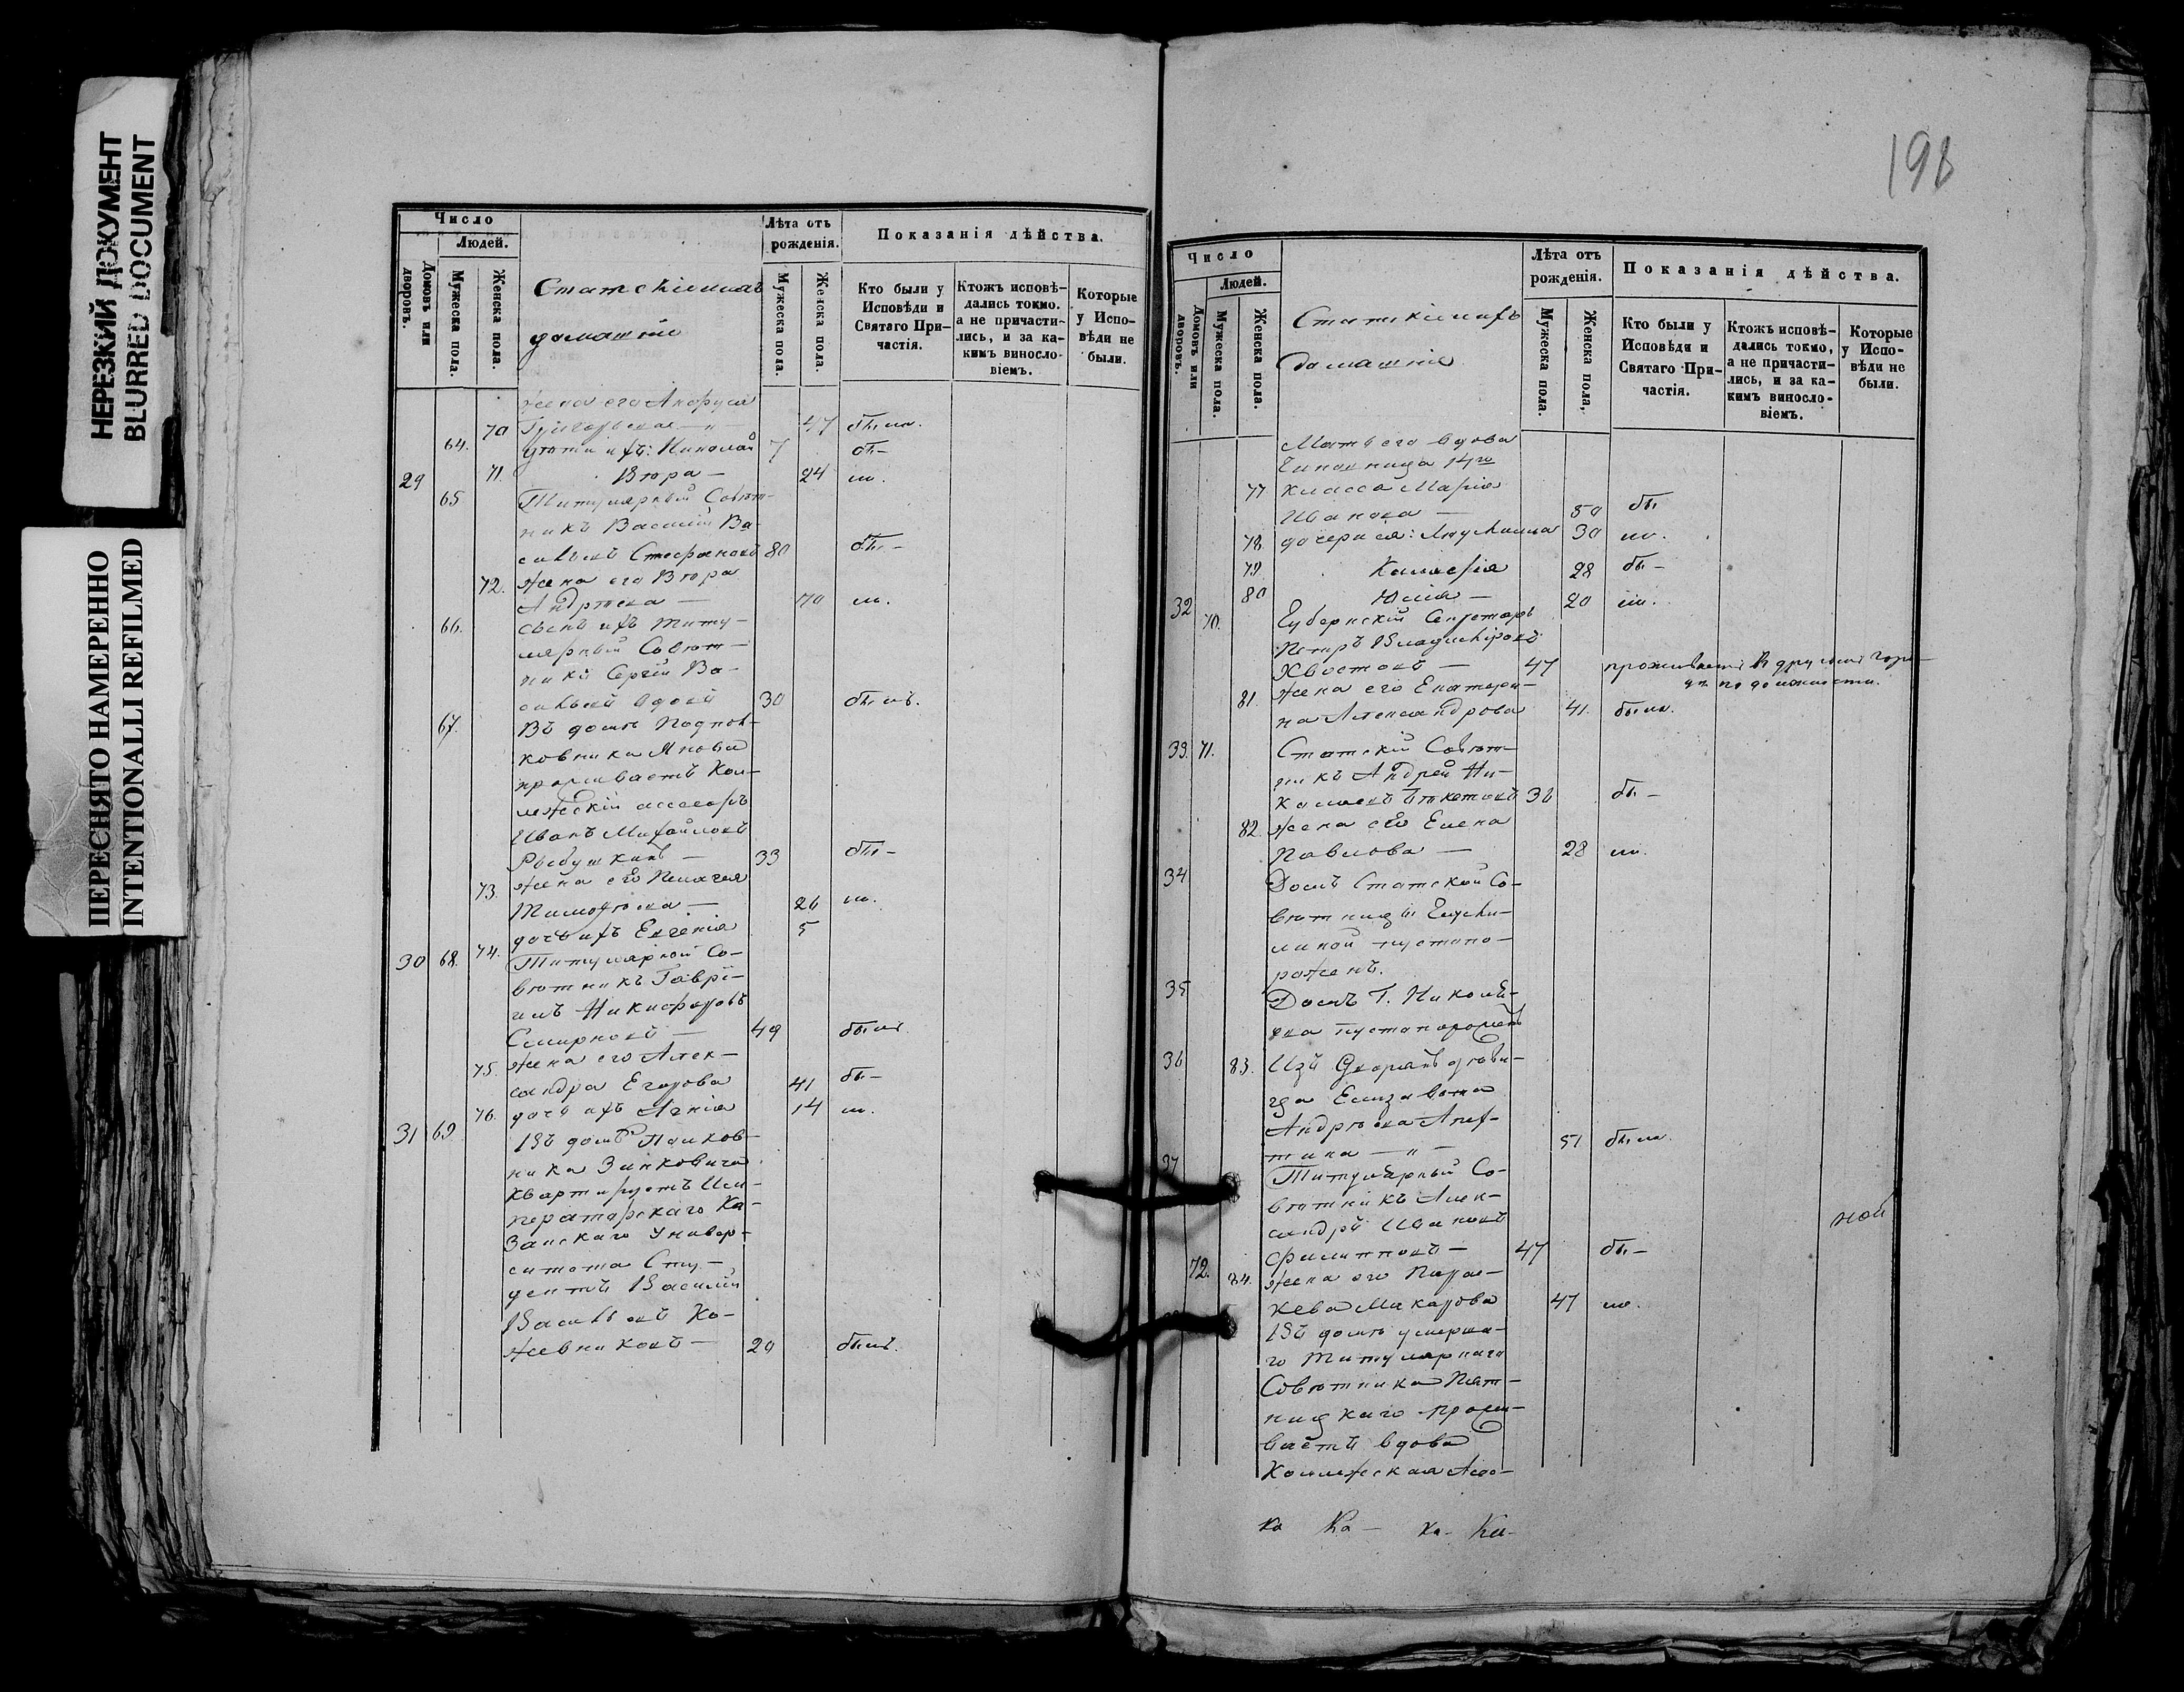 НЕРЕЗКИЙ ДОКУМЕНТ
BLURRED DOCUMENT
ПЕРЕСНЯТО НАМЕРЕННО
INTENTIONALLI REFILMED
Число
Людей.
Домовъ или дворовъ.
Мужеска пола.
Женска пола.
домашніе
Лѣта отъ рожденія.
Мужеска пола.
Женска пола.
Показанія дѣйства.
Кто были у Исповѣди и Святаго Причастія.
Ктожъ исповѣдались токмо. а не причастились, и за какимъ винословіемъ.
Которые у Исповѣди не были.
жена его
70 47 была.
64. дѣти ихъ: Николай 7 бы-
71. Вѣра — 24 ли.
29 65 Титулярный Совѣт-
никъ Василій Ва-
сильевъ Стефановъ 80 бы-
72. жена его Вѣра
Андреева — 70 ли.
66. сынъ ихъ титу-
лярный Совѣт-
никъ Сергій Ва-
сильевъ вдовъ 30 былъ.
67. Въ домѣ Подпол-
ковника Янова
проживаетъ Кол-
лежскій ассесоръ
Иванъ Михайловъ
Рыбушкинъ — 33 бы-
73. жена его Пелагея
Тимофѣева — 26 ли.
74. дочь ихъ Евгенія 5
30 68. Титулярной Со-
вѣтникъ Гаврі-
илъ Никифоровъ
Смирновъ — 49 былъ
75. жена его Алек-
сандра Егорова 41 бы-
76. дочь ихъ Агнія 14 ли.
31 69 Въ домѣ Полков-
ника Зинковича
квартируетъ Им-
ператорскаго Ка-
занскаго Универ-
ситета Сту-
дентъ Василій
Васильевъ Ко-
жевниковъ — 20 былъ.
198
Число
Людей.
Домовъ или дворовъ.
Мужеска пола.
Женска пола.
домашніе
Лѣта отъ рожденія.
Мужеска пола.
Женска пола,
Показанія дѣйства.
Кто были у Исповѣди и Святаго Причастія.
Ктожъ исповѣдались токмо, а не причастились, и за какимъ винословіемъ.
Которые у Исповѣди не были.
Мать его вдова
Чиновница 14го
77 класса Марія
Иванова — 50 бы
78. дочери ея: Людмилла 30 ли.
79. 28 бы-
80 Юлія — 20 ли.
32 70. Губернскій Секретарь
Петръ Владиміровъ
Хвостовъ — 47 проживаетъ въ другомъ горо-
дѣ по должности.
81. жена его Екатери-
на Александрова 41. была.
33. 71. Статскій Совѣт-
никъ Андрей Ни-
колаевъ Бекетовъ 36 бы-
82. жена его Елена
Павлова — 28 ли.
34 Домъ Статской Со-
вѣтницы
пустопо-
рожень.
35 Домъ Г.
пустопорожень
36 83. Изъ Дворянъ дѣви-
ца Елизавета
Андреева
— 51 была.
37 Титулярный Со-
вѣтникъ Алек-
сандръ Ивановъ
Филипповъ — 47 бы-
72. 84. жена его Парас-
кева Макарова 47 ли.
Въ домѣ умерша-
го Титулярнаго
Совѣтника Пят-
ницкаго прожи-
ваетъ вдова
Коллежская Ассе-
ка Ка- ка- Ка-